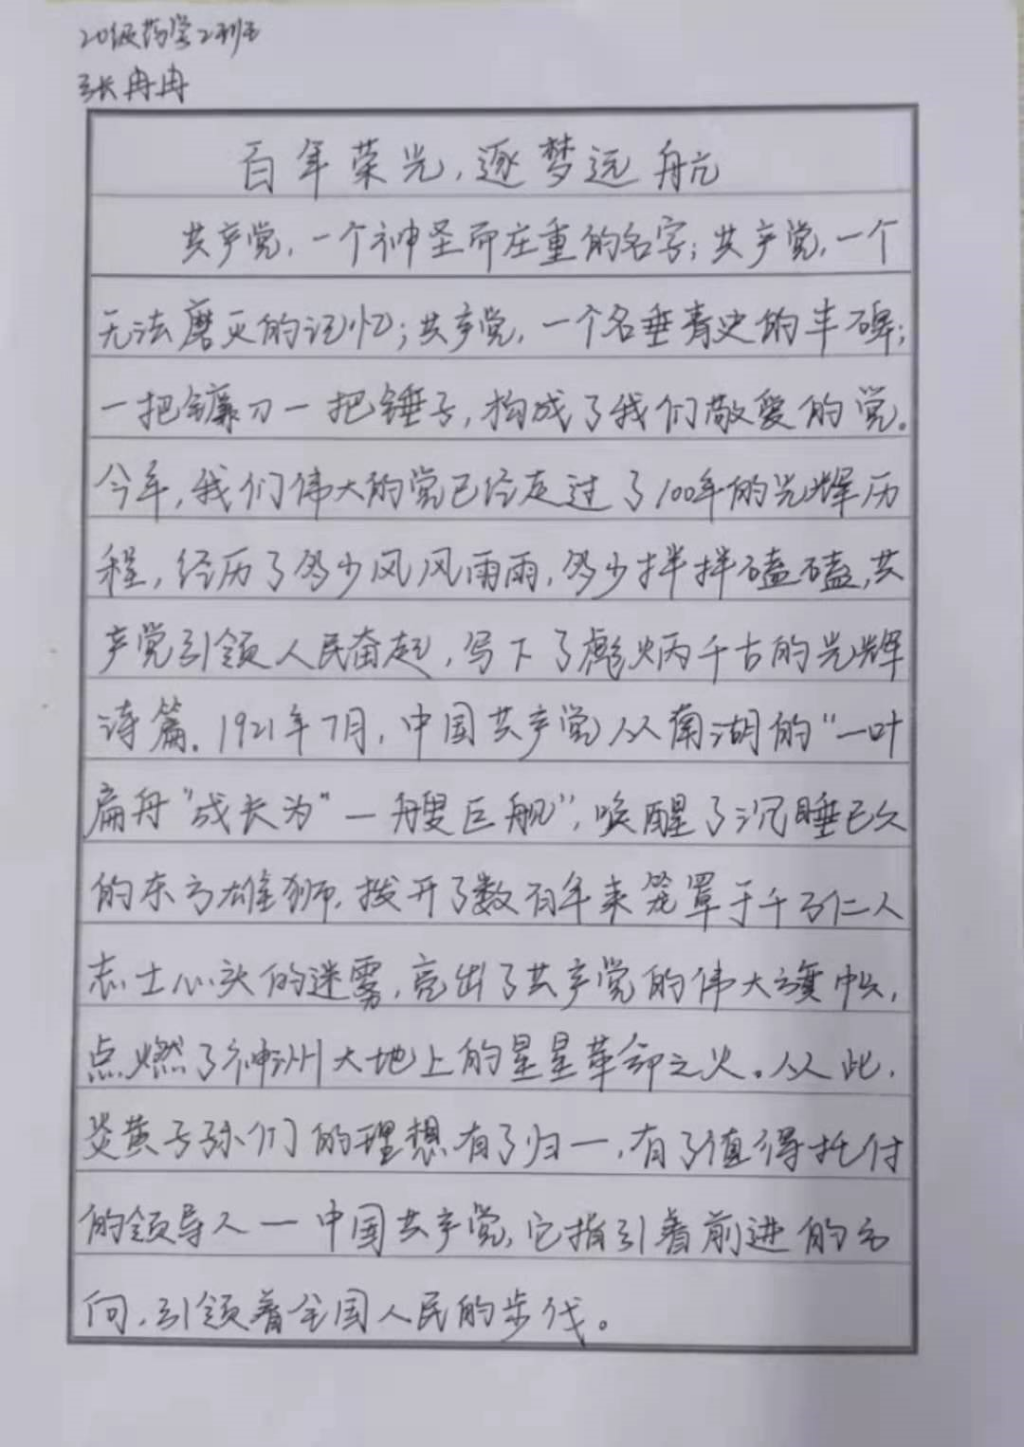 20级药学2班
张冉冉
百年荣光,逐梦远航
共产党,一个神圣而庄重的名字;共产党,一个
无法磨灭的记忆;共产党,一个名垂青史的丰碑;
一把镰刀一把锤子,构成了我们敬爱的党。
今年,我们伟大的党已经走过了100年的光辉历
程,经历了多少风风雨雨,多少拌拌磕磕,共
产党引领人民奋起,写下了彪炳千古的光辉
诗篇.1921年7月,中国共产党从南湖的“一叶
扁舟”成长为“一艘巨舰”,唤醒了沉睡已久
的东方雄狮.拨开了数百年来笼罩于千万仁人
志士心头的迷雾,亮出了共产党的伟大旗帜,
点燃了神州大地上的星星革命之火.从此,
炎黄子孙们的理想有了归一,有了值得托付
的领导人—中国共产党,它指引着前进的方
向,引领着全国人民的步伐。